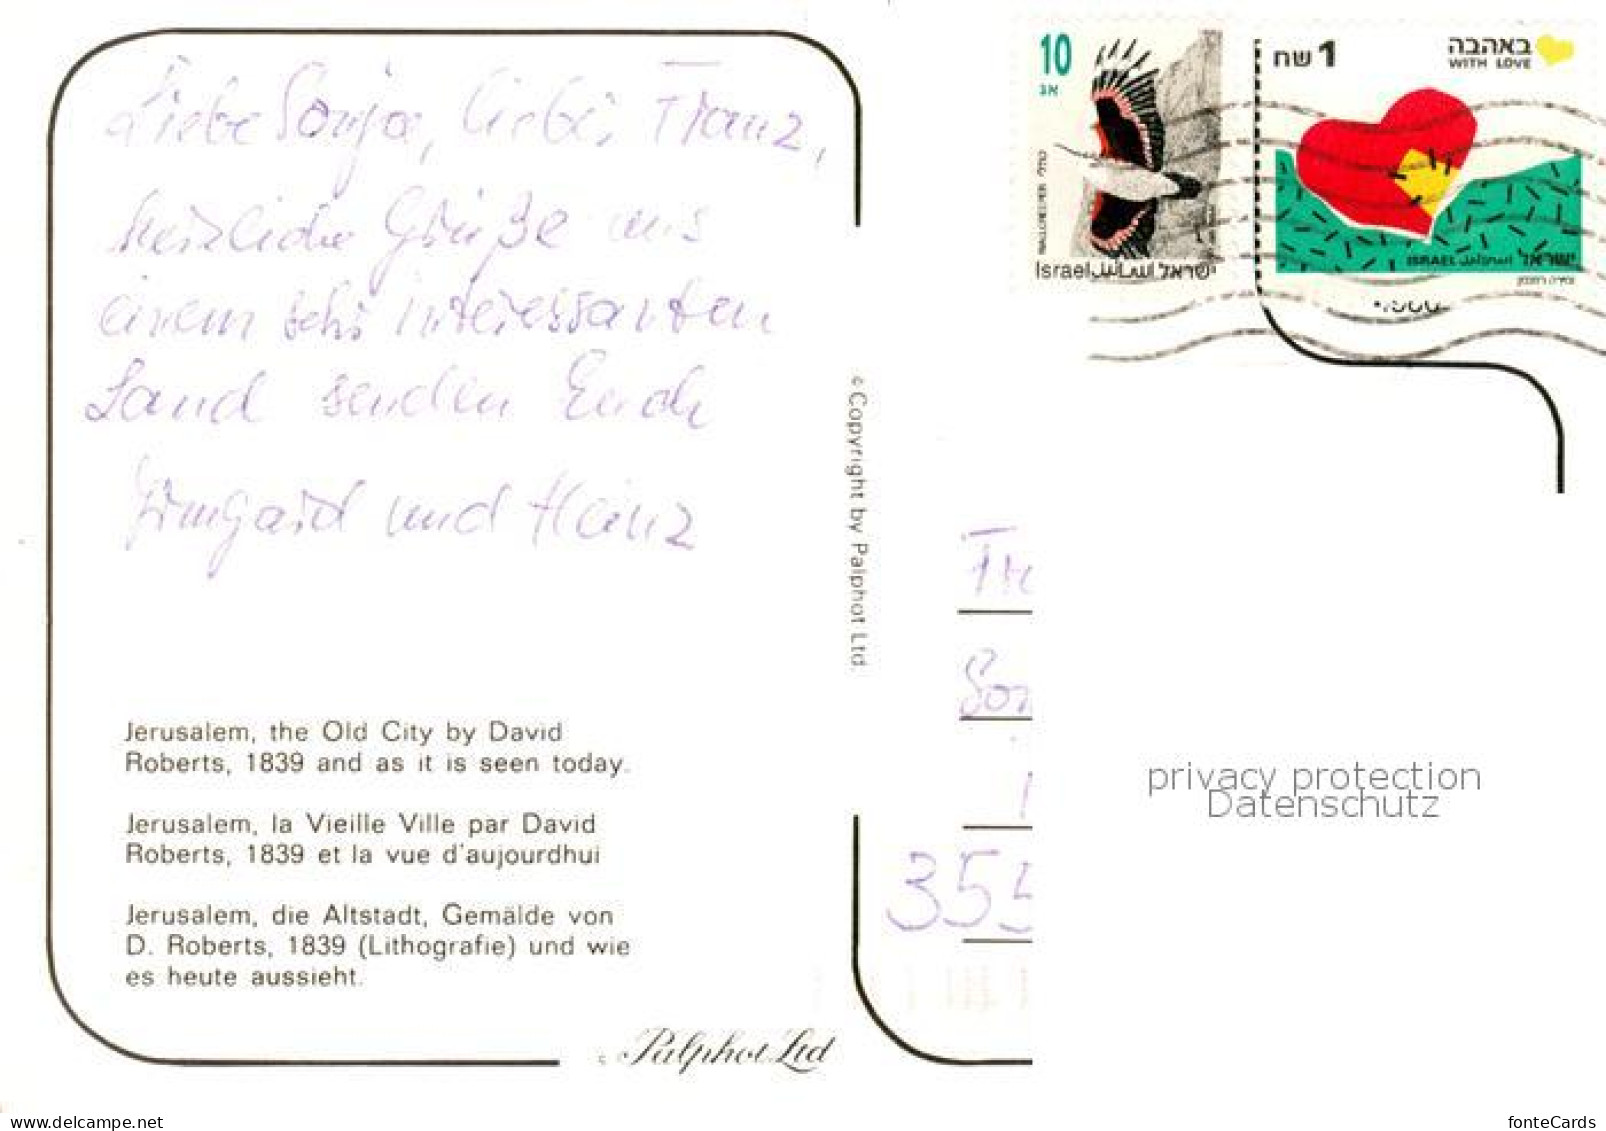 Liebe Sonja, lieber Franz,
herzliche Grüße aus
einem sehr interessanten
Land senden Euch
Irmgard und Heinz
Jerusalem, the Old City by David
Roberts, 1839 and as it is seen today.
Jerusalem, la Vieille Ville par David
Roberts, 1839 et la vue d'aujourdhui
Jerusalem, die Altstadt, Gemälde von
D. Roberts, 1839 (Lithografie) und wie
es heute aussieht.
© Palphot Ltd
© Copyright by Palphot Ltd.
10
אג
WALLCREEPER
כותלי
Israel اسرائيل ישראל
1 שח
באהבה
WITH LOVE
ISRAEL اسرائيل ישראל
Fra
Son
355
privacy protection
Datenschutz
www.ansichtskarten-center.de
fonteCards